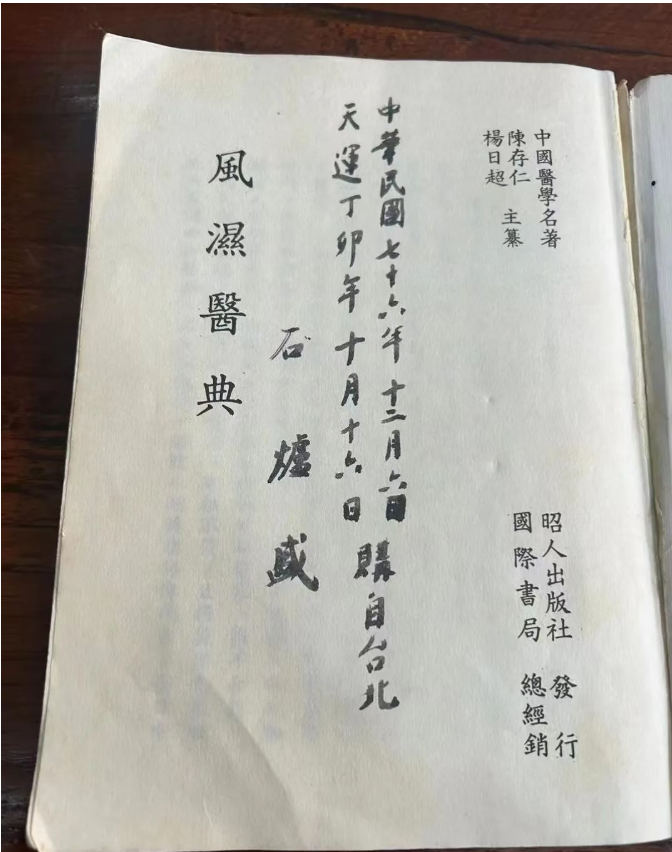 中國醫學名著
陳存仁
楊日超
主纂
昭人出版社 發行
國際書局 總經銷
中華民國七十六年十二月六日
天運丁卯年十月十六日
購自台北
石爐盛
風濕醫典